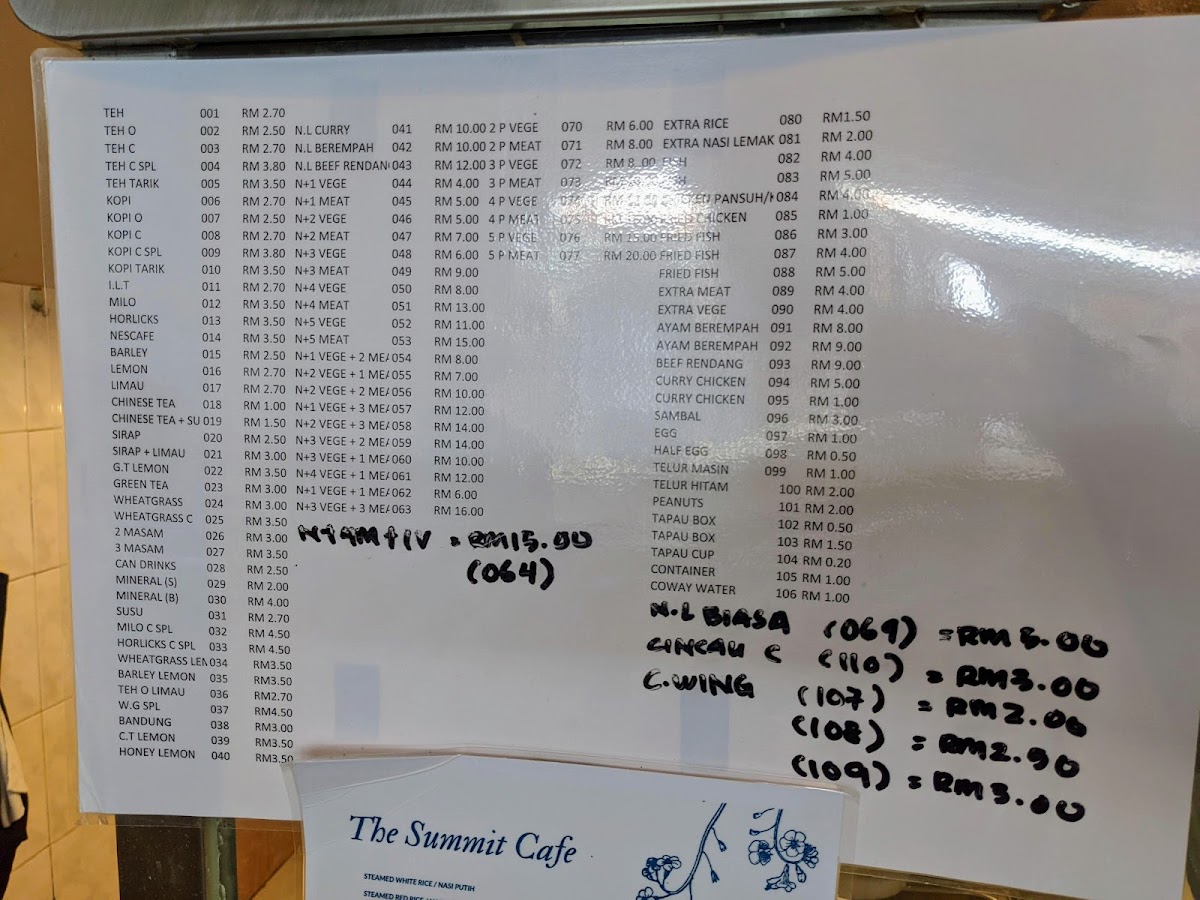 TEH 001 RM 2.70
TEH O 002 RM 2.50
TEH C 003 RM 2.70
TEH C SPL 004 RM 3.80
TEH TARIK 005 RM 3.50
KOPI 006 RM 2.70
KOPI O 007 RM 2.50
KOPI C 008 RM 2.70
KOPI C SPL 009 RM 3.80
KOPI TARIK 010 RM 3.50
I.L.T 011 RM 2.70
MILO 012 RM 3.50
HORLICKS 013 RM 3.50
NESCAFE 014 RM 3.50
BARLEY 015 RM 2.50
LEMON 016 RM 2.70
LIMAU 017 RM 2.70
CHINESE TEA 018 RM 1.00
CHINESE TEA + SU 019 RM 1.50
SIRAP 020 RM 2.50
SIRAP + LIMAU 021 RM 3.00
G.T LEMON 022 RM 3.50
GREEN TEA 023 RM 3.00
WHEATGRASS 024 RM 3.00
WHEATGRASS C 025 RM 3.50
2 MASAM 026 RM 3.00
3 MASAM 027 RM 3.50
CAN DRINKS 028 RM 2.50
MINERAL (S) 029 RM 2.00
MINERAL (B) 030 RM 4.00
SUSU 031 RM 2.70
MILO C SPL 032 RM 4.50
HORLICKS C SPL 033 RM 4.50
WHEATGRASS LEN 034 RM3.50
BARLEY LEMON 035 RM3.50
TEH O LIMAU 036 RM2.70
W.G SPL 037 RM4.50
BANDUNG 038 RM3.00
C.T LEMON 039 RM3.50
HONEY LEMON 040 RM3.50
N.L CURRY 041 RM 10.00
N.L BEREMPAH 042 RM 10.00
N.L BEEF RENDANG 043 RM 12.00
N+1 VEGE 044 RM 4.00
N+1 MEAT 045 RM 5.00
N+2 VEGE 046 RM 5.00
N+2 MEAT 047 RM 7.00
N+3 VEGE 048 RM 6.00
N+3 MEAT 049 RM 9.00
N+4 VEGE 050 RM 8.00
N+4 MEAT 051 RM 13.00
N+5 VEGE 052 RM 11.00
N+5 MEAT 053 RM 15.00
N+1 VEGE + 2 MEA 054 RM 8.00
N+2 VEGE + 1 MEA 055 RM 7.00
N+2 VEGE + 2 MEA 056 RM 10.00
N+1 VEGE + 3 MEA 057 RM 12.00
N+2 VEGE + 3 MEA 058 RM 14.00
N+3 VEGE + 2 MEA 059 RM 14.00
N+3 VEGE + 1 MEA 060 RM 10.00
N+4 VEGE + 1 MEA 061 RM 12.00
N+1 VEGE + 1 MEA 062 RM 6.00
N+3 VEGE + 3 MEA 063 RM 16.00
N+4M+1V = RM15.00
(064)
2 P VEGE 070 RM 6.00
2 P MEAT 071 RM 8.00
3 P VEGE 072 RM 8.00
3 P MEAT 073
4 P VEGE
4 P MEAT
5 P VEGE 076 RM 15.00
5 P MEAT 077 RM 20.00
EXTRA RICE 080 RM1.50
EXTRA NASI LEMAK 081 RM 2.00
FISH 082 RM 4.00
083 RM 5.00
PANSUH/ 084 RM 4.00
CHICKEN 085 RM 1.00
FRIED FISH 086 RM 3.00
FRIED FISH 087 RM 4.00
FRIED FISH 088 RM 5.00
EXTRA MEAT 089 RM 4.00
EXTRA VEGE 090 RM 4.00
AYAM BEREMPAH 091 RM 8.00
AYAM BEREMPAH 092 RM 9.00
BEEF RENDANG 093 RM 9.00
CURRY CHICKEN 094 RM 5.00
CURRY CHICKEN 095 RM 1.00
SAMBAL 096 RM 3.00
EGG 097 RM 1.00
HALF EGG 098 RM 0.50
TELUR MASIN 099 RM 1.00
TELUR HITAM 100 RM 2.00
PEANUTS 101 RM 2.00
TAPAU BOX 102 RM 0.50
TAPAU BOX 103 RM 1.50
TAPAU CUP 104 RM 0.20
CONTAINER 105 RM 1.00
COWAY WATER 106 RM 1.00
N.L BIASA (069) = RM 5.00
CINCAU C (110) = RM3.00
C.WING (107) = RM2.00
(108) = RM2.50
(109) = RM3.00
The Summit Cafe
STEAMED WHITE RICE / NASI PUTIH
STEAMED RED RICE